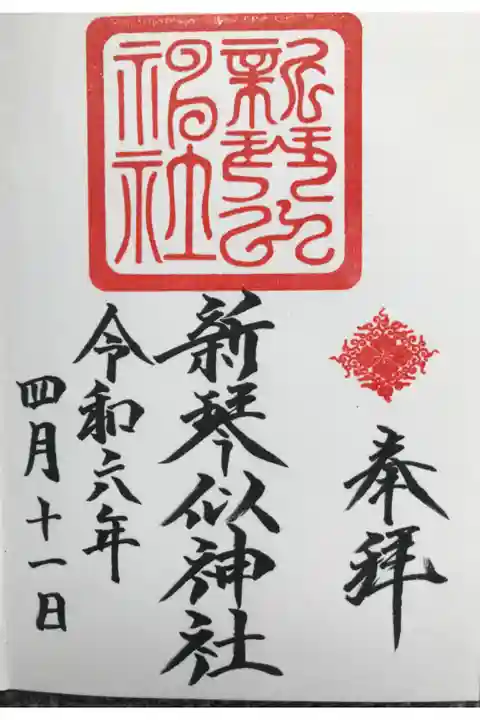 奉拝
新琴似神社
新琴似
神社
令和六年
四月十一日